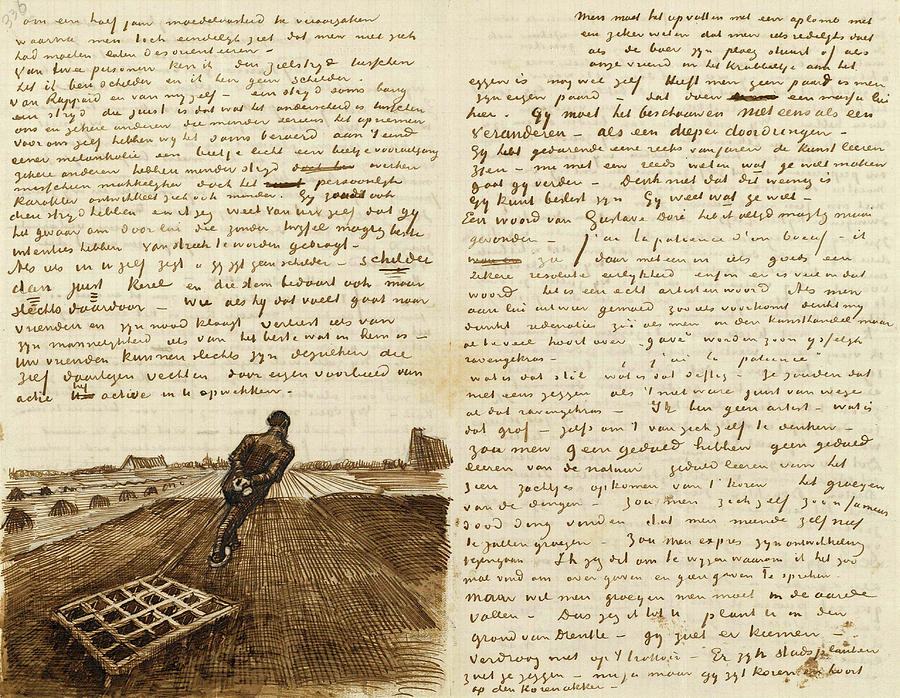 336
om een half jaar moedeloosheid te veroorzaken
waarna men toch eindelijk ziet dat men zich niet
had moeten laten desorienteeren –
Van twee personen ken ik den zielestrijd tusschen
het ik ben schilder en ik ben geen schilder.
Van Rappard en van mijzelf – een strijd soms bang
een strijd die juist is dat wat het onderscheid is tusschen
ons en zekere anderen die minder serieus het opnemen
Voor ons zelf hebben wij 't soms beroerd aan 't eind
eener melankolie een beetje licht een beetje vooruitgang
zekere anderen hebben minder strijd doch werken
misschien makkelijker doch het persoonlijk
karakter ontwikkelt zich ook minder. Gij zoudt ook
dien strijd hebben en ik zeg weet van U zelf dat gij
het gevaar om door lui die zonder twijfel magtig beste
intenties hebben van streek te worden gebragt –
Als iets in U zelf zegt „gij zijt geen schilder – schilder
dan juist kerel en die stem bedaart ook maar
slechts daardoor – Wie als hij dat voelt gaat naar
vrienden en zijn nood klaagt verliest iets van
zijn mannelijkheid iets van het beste wat in hem is –
Uw vrienden kunnen slechts zijn dezulken die
zelf daartegen vechten door eigen voorbeeld van
actie de active in U opwekken –
Men moet het opvatten met een aplomb met
een zeker weten dat men iets redelijks doet
als de boer zijn ploeg stuurt of als
onze vriend in het krabbeltje aan het
eggen is nog wel zelf Heeft men geen paard is men
zijn eigen paard – dat doen een massa lui
hier. Gij moet het beschouwen niet eens als een
veranderen – als een dieper doordringen –
Gij hebt gedurende eene reeks van jaren de kunst leeren
zien – nu met een reeds weten wat ge wilt maken
gaat gij verder – Denk niet dat dit weinig is
Gij kunt beslist zijn Gij weet wat ge wil –
Een woord van Gustave Doré heb ik altijd magtig mooi
gevonden – j'ai la patience d'un boeuf – ik
zie daar meteen in iets goeds een
zekere resolute eerlijkheid enfin er is veel in dat
woord het is een echt artistenwoord Als men
aan lui uit wier gemoed zoo iets voortkomt denkt mij
dunkt redenaties zooals men in den kunsthandel maar
al te veel hoort over „gave" worden zoo ijselijk
ravengekras – „j'ai la patience"
wat is dat stil wat is dat deftig – Ze zouden dat
niet eens zeggen als 't niet ware juist van wege
al dat ravengekras – Ik ben geen artist – wat is
dat grof – zelfs om 't van zich zelf te denken –
zou men geen geduld hebben geen geduld
leeren van de natuur geduld leeren van het
zien zachtjes opkomen van 't koren het groeijen
van de dingen – zou men zich zelf zoo'n fameus
dood ding vinden dat men meende zelf niet
te zullen groeijen – Zou men expres zijn ontwikkeling
tegengaan Ik zeg dit om te wijzen waarom ik het zoo
mal vind om over gaven en geen gaven te spreken.
Maar wil men groeijen men moet in de aarde
vallen – Dus zeg ik tot U plant U in den
grond van Drenthe – gij zult er kiemen –
Verdroog niet op 't trottoir – Er zijn stadsplanten
zult ge zeggen – nu ja maar gij zijt koren en hoort
op den korenakker –